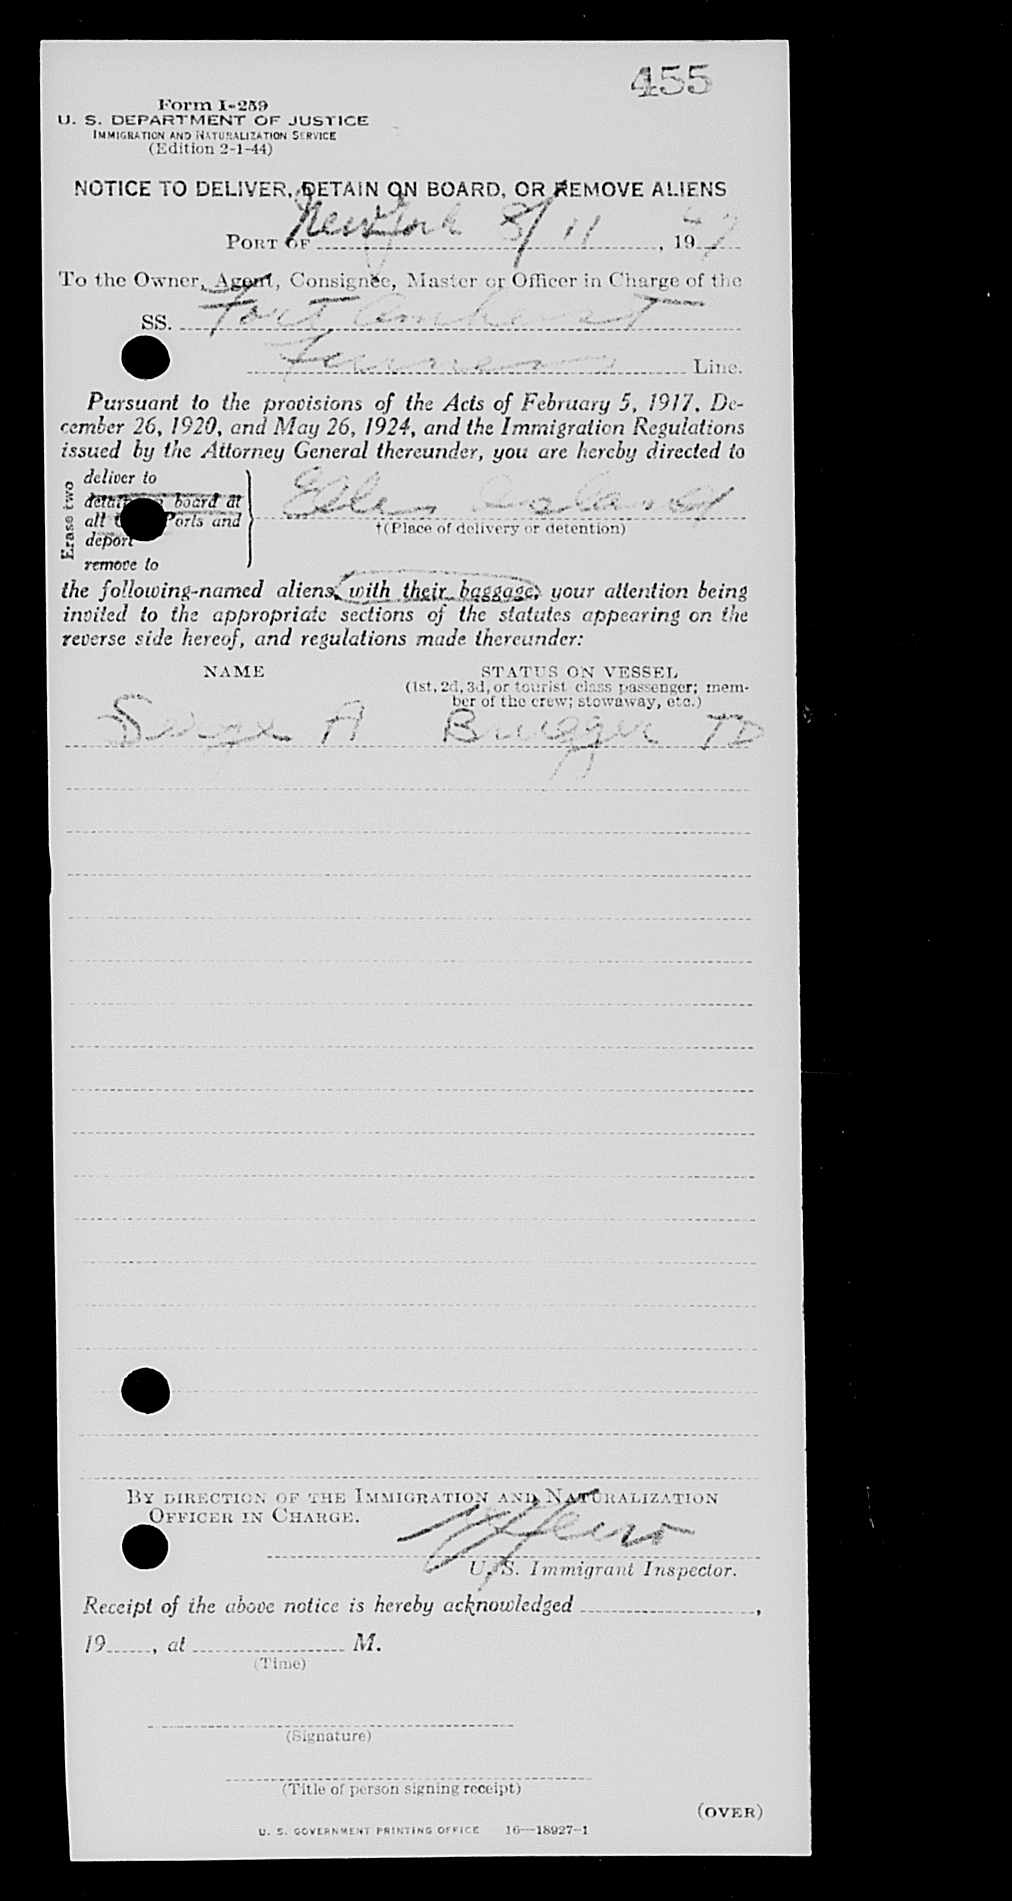 455
Form I-259
U. S. DEPARTMENT OF JUSTICE
IMMIGRATION AND NATURALIZATION SERVICE
(Edition 2-1-44)
NOTICE TO DELIVER, DETAIN ON BOARD, OR REMOVE ALIENS
PORT OF New York 8/11, 1947
To the Owner, Agent, Consignee, Master or Officer in Charge of the
SS. Fort Amherst
Furness Line.
Pursuant to the provisions of the Acts of February 5, 1917, De-
cember 26, 1920, and May 26, 1924, and the Immigration Regulations
issued by the Attorney General thereunder, you are hereby directed to
Erase two
deliver to
detain on board at
all Ports and
deport
remove to
Ellis Island
†(Place of delivery or detention)
the following-named aliens, with their baggage, your attention being
invited to the appropriate sections of the statutes appearing on the
reverse side hereof, and regulations made thereunder:
NAME STATUS ON VESSEL
(1st, 2d, 3d, or tourist class passenger; mem-
ber of the crew; stowaway, etc.)
Serge A Brugger TD
BY DIRECTION OF THE IMMIGRATION AND NATURALIZATION
OFFICER IN CHARGE.
U. S. Immigrant Inspector.
Receipt of the above notice is hereby acknowledged ,
19 , at M.
(Time)
(Signature)
(Title of person signing receipt)
(OVER)
U. S. GOVERNMENT PRINTING OFFICE 16—18927-1